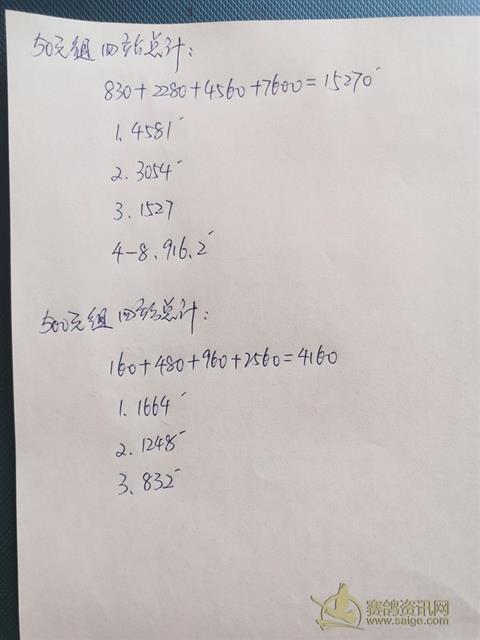 50元组四站总计:
830+2280+4560+7600=15270
1.4581
2.3054
3.1527
4-8.916.2
500元组四站总计:
160+480+960+2560=4160
1.1664
2.1248
3.832
赛鸽资讯网
www.saige.com